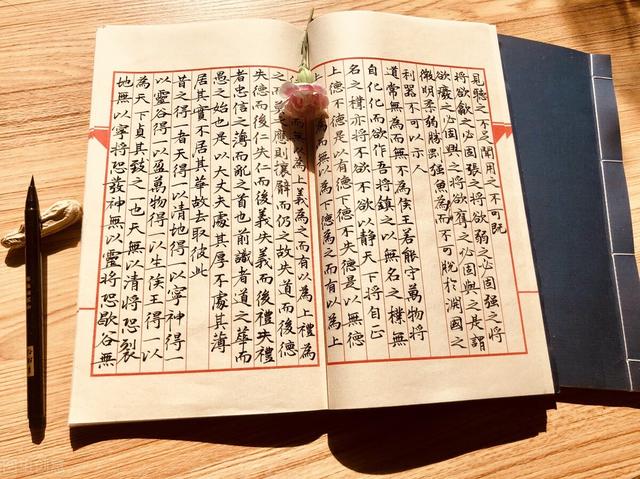 見聽之不足聞用之不可既
將欲歙之必固張之將欲弱之必固強之將
欲廢之必固興之將欲奪之必固與之是謂
微明柔弱勝剛強魚為而不可脫於淵國之
利器不可以示人
道常無為而無不為侯王若能守萬物將
自化化而欲作吾將鎮之以無名之樸無
名之樸亦將不欲不欲以靜天下將自正
上德不德是以有德下德不失德是以無德
上為而無以為下德為之而有以為上
無以為上義為之而有以為上禮為
之而莫之應則攘臂而仍之故失道而後德
失德而後仁失仁而後義失義而後禮夫禮
者忠信之薄而亂之首也前識者道之華而
愚之始也是以大丈夫處其厚不處其薄
居其實不居其華故去取彼此
昔之得一者天得一以清地得一以寧神得一
以靈谷得一以盈萬物得一以生侯王得一以
為天下貞其致之一也天無以清將恐裂
地無以寧將恐發神無以靈將恐歇谷無